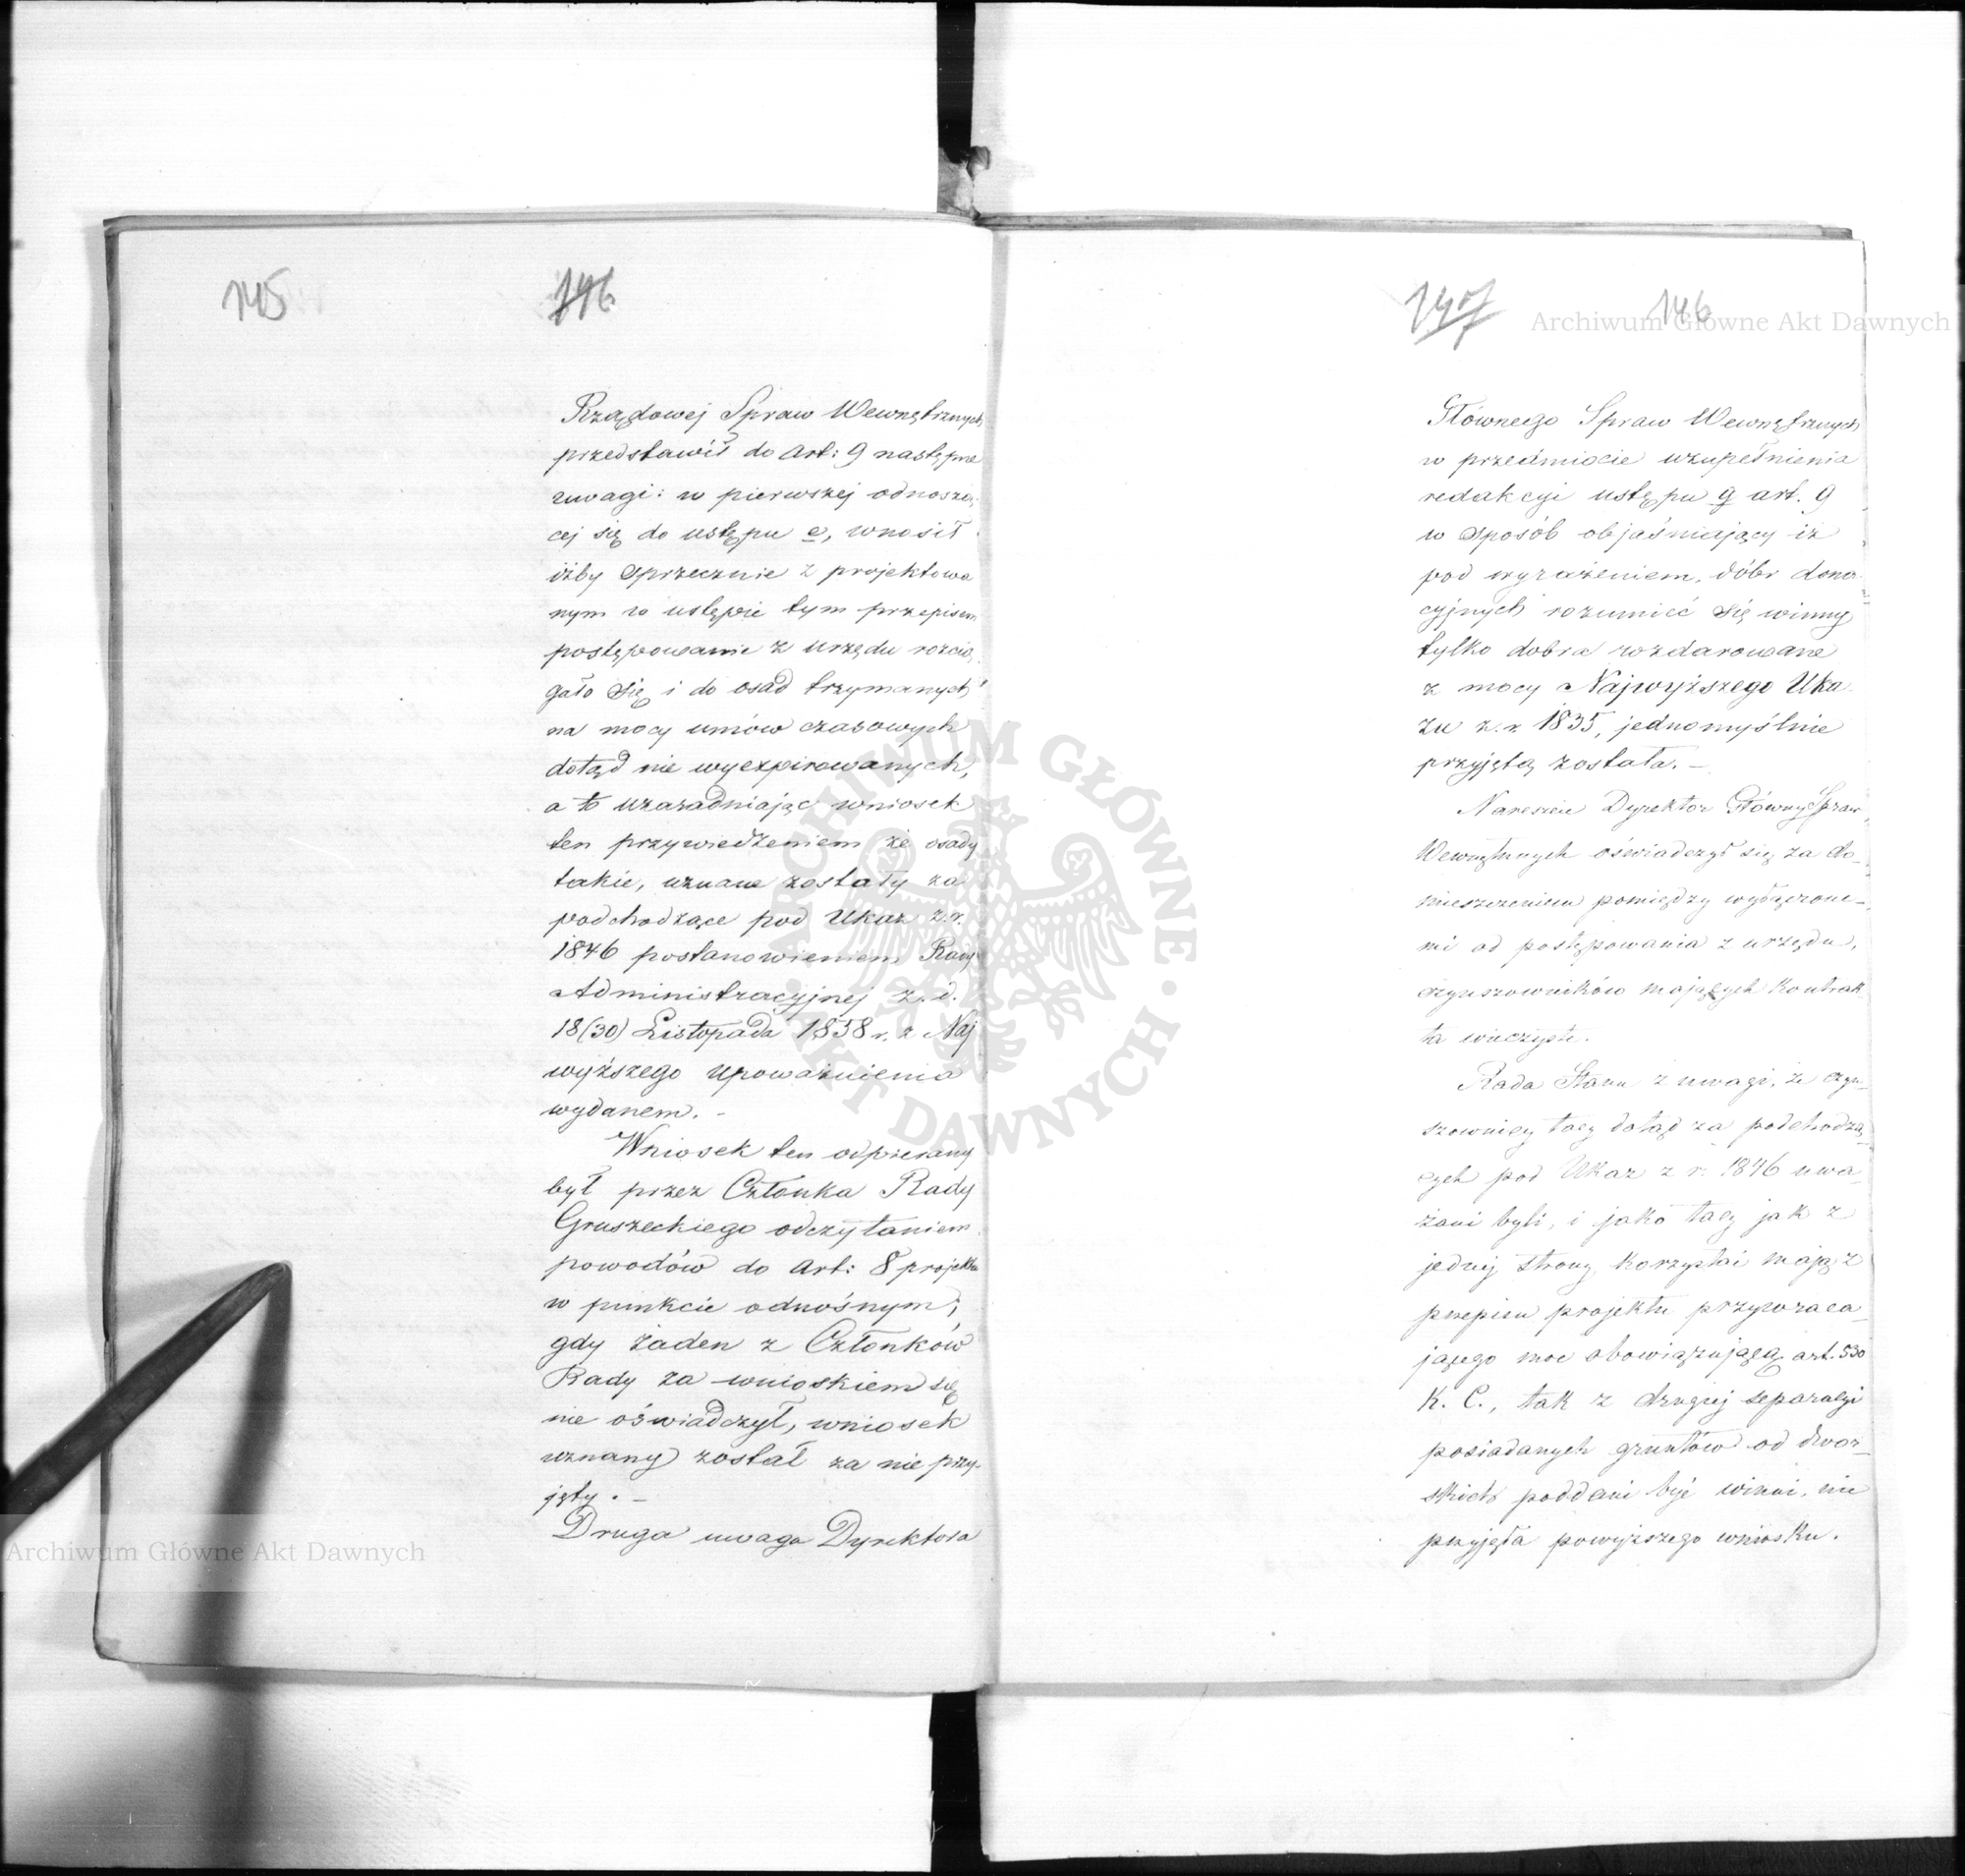 145
146
Rządowej Spraw Wewnętrznych
przedstawił do Art: 9 następne
uwagi: w pierwszej odnoszą
cej się do ustępu e, wnosił
iżby sprzecznie z projektowa
nym w ustępie tym przepisem
postępowanie z urzędu rozcią
gało się i do osad trzymanych
na mocy umów czasowych
dotąd nie wyexpirowanych,
a to uzasadniając wniosek
ten przywiedzeniem że osady
takie, uznane zostały za
podchodzące pod Ukaz z.r.
1846 postanowieniem Rady
Administracyjnej z.d.
18(30) Listopada 1858 r. z Naj
wyższego upoważnienia
wydanem. -
Wniosek ten odpierany
był przez Członka Rady
Gruszeckiego odczytaniem
powodów do Art: 8 projektu
w punkcie odnośnym;
gdy żaden z Członków
Rady za wnioskiem się
nie oświadczył, wniosek
uznany został za nie przy-
jęty. -
Druga uwaga Dyrektora
147
146
Głównego Spraw Wewnętrznych
w przedmiocie uzupełnienia
redakcyi ustępu g art. 9
w sposób objaśniający iż
pod wyrażeniem, dóbr dona
cyjnych rozumieć się winny
tylko dobra rozdarowane
z mocy Najwyższego Uka
zu z.r. 1835, jednomyślnie
przyjętą została. -
Nareszcie Dyrektor Główny Spraw
Wewnętrznych oświadczył się za do-
mieszczeniem pomiędzy wyłączone-
mi od postępowania z urzędu,
czynszowników mających Kontrak
ta wieczyste.
Rada Stanu z uwagi, że czyn-
szownicy tacy dotąd za podchodzą
cych pod Ukaz z r. 1846 uwa-
żani byli, i jako tacy jak z
jednej strony korzystać mają z
przepisu projektu przywraca-
jącego moc obowiązującą art. 530
K. C., tak z drugiej separacyi
posiadanych gruntów od dwor-
skich poddani być winni, nie
przyjęła powyższego wniosku.
Archiwum Główne Akt Dawnych
Archiwum Główne Akt Dawnych
ARCHIWUM GŁÓWNE · AKT DAWNYCH ·